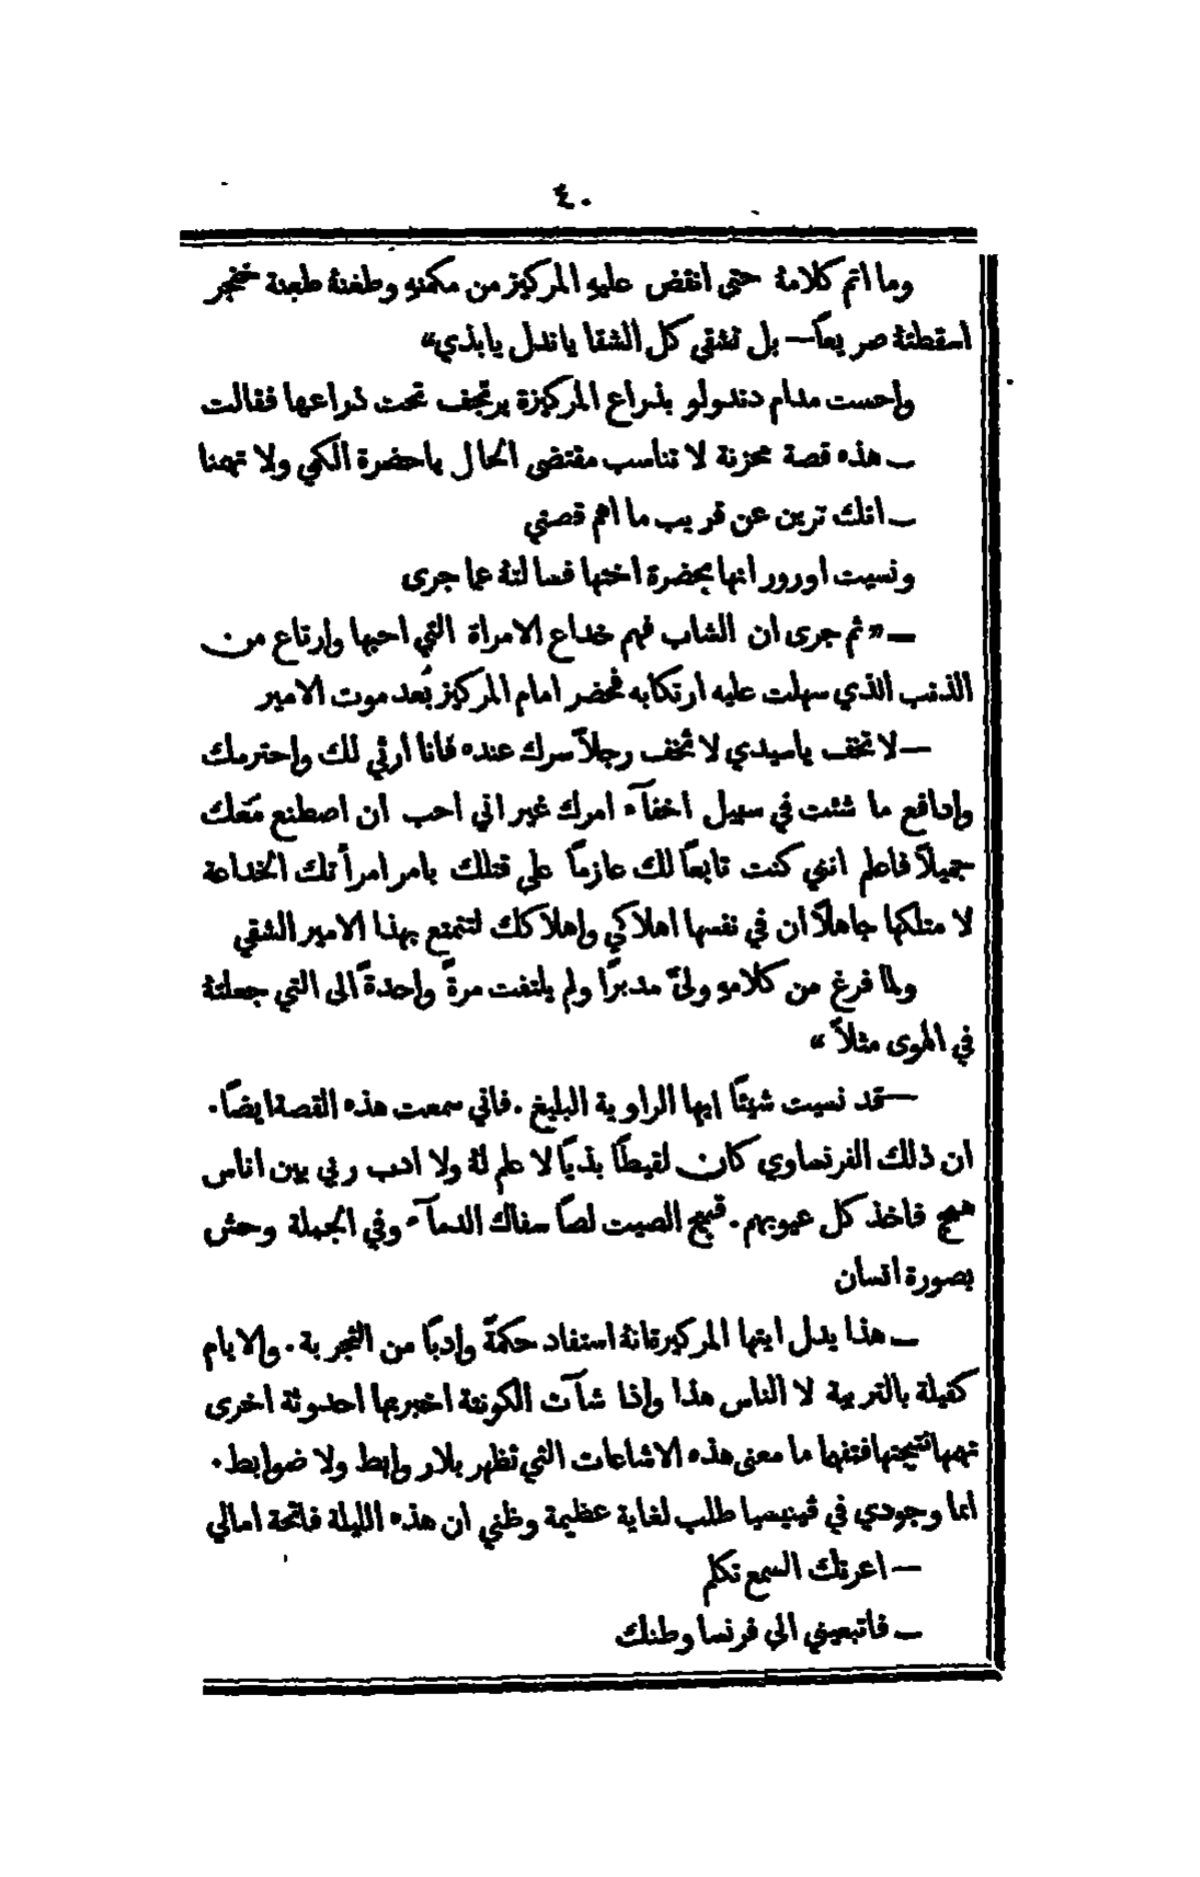 ٤٠
وما اتم كلامهُ حتى انقض عليهِ المركيز من مكمنهِ وطعنهُ طعنة خنجر
اسقطتهُ صريعاً— بل تشقى كل الشقا يا نذل يا بذي“
واحست مدام دندولو بذراع المركيزة يرتجف تحت ذراعها فقالت
— هذه قصة محزنة لا تناسب مقتضى الحال يا حضرة الكمي ولا تهمنا
— انك ترين عن قريب ما اهم قصتي
ونسيت اورور انها بحضرة اختها فسالتهُ عما جرى
— ”ثم جرى ان الشاب فهم خداع الامراة التي احبها وارتاع من
الذنب الذي سهلت عليه ارتكابه فحضر امام المركيز بُعد موت الامير
— لا تخف ياسيدي لا تخف رجلاً سرك عنده فانا أرثي لك واحترمك
وادافع ما شئت في سبيل اخفآء امرك غير اني احب ان اصطنع مَعك
جميلاً فاعلم انني كنت تابعاً لك عازماً على قتلك بامر امرأتك الخداعة
لا متلكها جاهلاً ان في نفسها اهلاكي واهلاكك لتتمتع بهذا الامير الشقي
ولما فرغ من كلامهِ ولىَّ مدبراً ولم يلتفت مرةً واحدةً الى التي جعلتهُ
في الهوى مثلاً “
— قد نسيت شيئًا ايها الراوية البليغ . فاني سمعت هذه القصة ايضاً .
ان ذلك الفرنساوي كان لقيطًا بذيًا لا علم لهُ ولا ادب ربي بين اناس
همج فاخذ كل عيوبهم . قبيح الصيت لصاً سفاك الدمآء وفي الجملة وحش
بصورة انسان
— هذا يدل ايتها المركيزة انهُ استفاد حكمةً وادبًا من التجربة . والايام
كفيلة بالتربية لا الناس هذا واذا شآءت الكونتة اخبريها احدوثة اخرى
تهمها نتيجتها فتفهما ما معنى هذه الاشاعات التي تظهر بلا روابط ولا ضوابط .
انما وجودي في ڤينيسيا طلب لغاية عظيمة وظني ان هذه الليلة فاتحة امالي
— اعرتك السمع تكلم
— فاتبعيني الى فرنسا وطنك